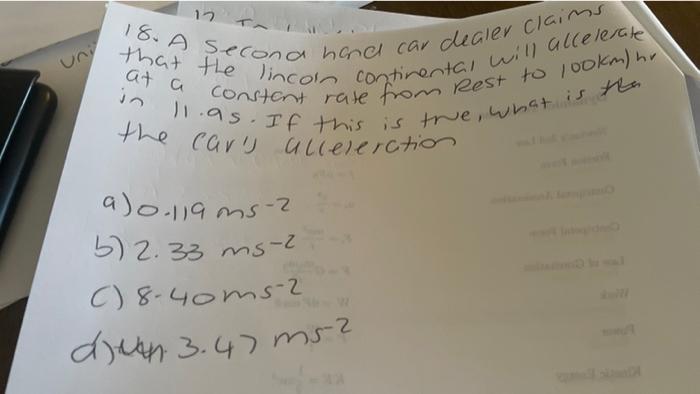 18. A second hand car dealer claims
that the lincoln continental will accelerate
at a constant rate from Rest to 100km/hr
in 11.9s. If this is true, what is the
the car's acceleration
a) 0.119 ms-2
b) 2.33 ms-2
c) 8.40 ms-2
d) 3.47 ms-2